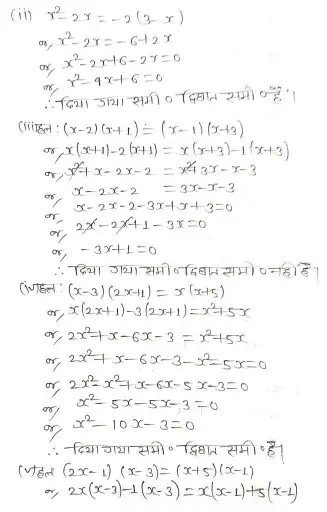 (ii) x²-2x = -2(3-x)
or, x²-2x = -6+2x
or, x²-2x+6-2x=0
or, x²-4x+6=0
∴ दिया गया समी० द्विघात समी० है।
(iii)हल: (x-2)(x+1) = (x-1)(x+3)
or, x(x+1)-2(x+1) = x(x+3)-1(x+3)
or, x²+x-2x-2 = x²+3x-x-3
or, x-2x-2 = 3x-x-3
or, x-2x-2-3x+x+3=0
or, 2x-2x+1-3x=0
or, -3x+1=0
∴ दिया गया समी० द्विघात समी० नही है।
(iv)हल: (x-3)(2x+1) = x(x+5)
or, x(2x+1)-3(2x+1)=x²+5x
or, 2x²+x-6x-3 = x²+5x
or, 2x²+x-6x-3-x²-5x=0
or, 2x²-x²+x-6x-5x-3=0
or, x²-5x-5x-3=0
or, x²-10x-3=0
∴ दिया गया समी० द्विघात समी० है।
(v)हल (2x-1)(x-3)=(x+5)(x-1)
or, 2x(x-3)-1(x-3)=x(x-1)+5(x-1)